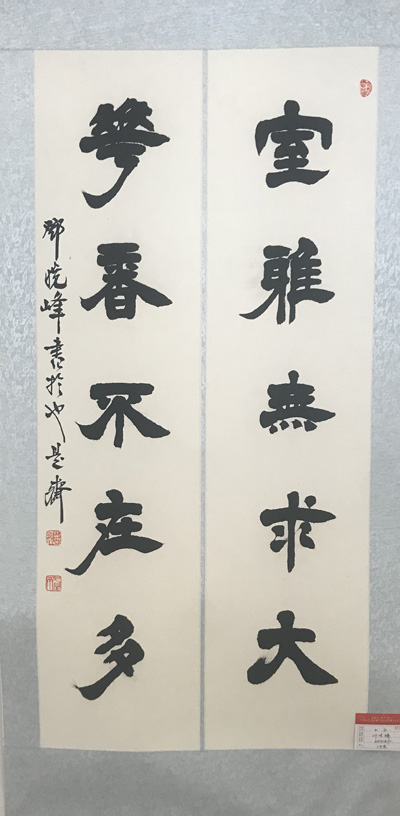 室雅無求大
花香不在多
鄧曉峰書於也是齋